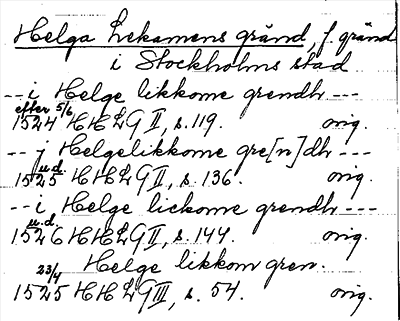 Helga Lekamens gränd, f. gränd
i Stockholms stad
--- i Helge likkome grendh ---
efter 5/6
1524 HHLG II, s. 119. orig.
--- j Helgelikkome gre[n]dh ---
u.d.
1525 HHLG II, s. 136. orig.
--- i Helge lickome grendh ---
u.d.
1526 HHLG II, s. 144. orig.
Helge likkom gren.
23/4
1525 HHLG III, s. 54. orig.